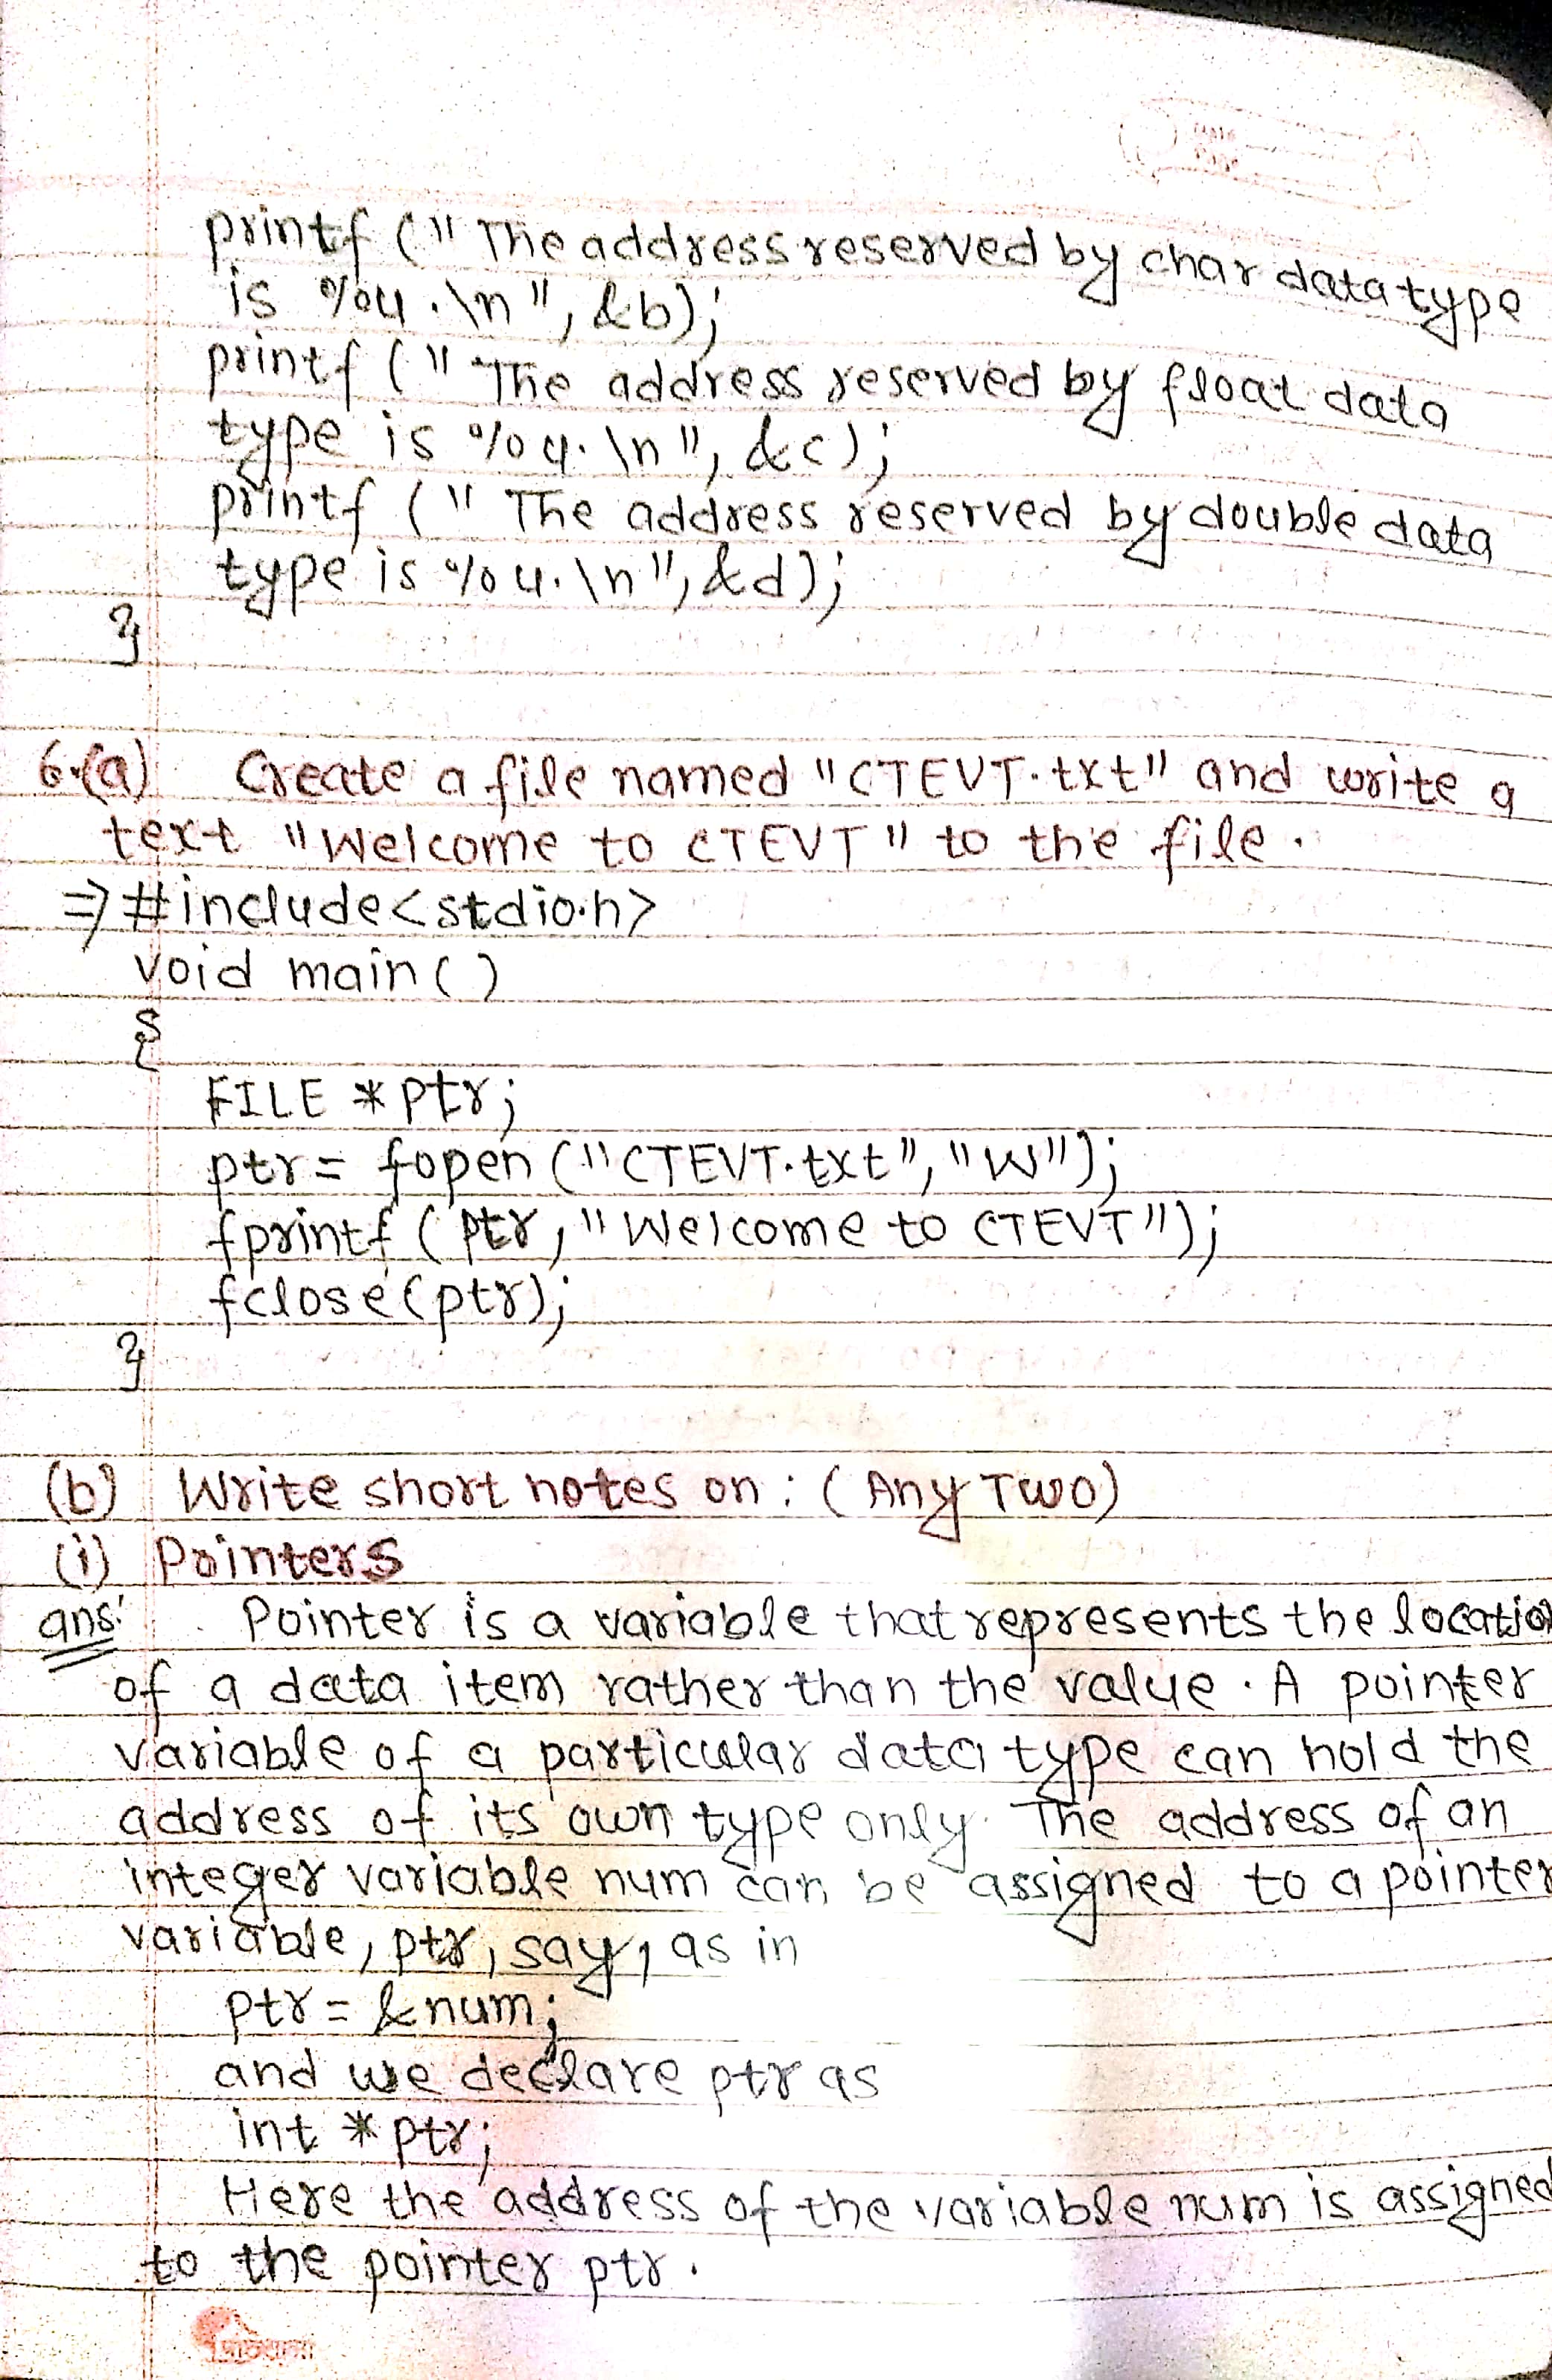 printf (" The address reserved by char data type
is %u .\n", &b);
printf (" The address reserved by float data
type is %u. \n", &c);
printf (" The address reserved by double data
type is %u. \n", &d);
}
6.(a) Create a file named "CTEVT.txt" and write a
text "Welcome to CTEVT" to the file.
⇒ #include<stdio.h>
void main()
{
FILE *ptr;
ptr = fopen ("CTEVT.txt", "W");
fprintf (ptr, "Welcome to CTEVT");
fclose(ptr);
}
(b) Write short notes on : ( Any Two)
(i) Pointers
ans: Pointer is a variable that represents the location
of a data item rather than the value . A pointer
variable of a particular data type can hold the
address of its own type only. The address of an
integer variable num can be assigned to a pointer
variable, ptr, say, as in
ptr = &num;
and we declare ptr as
int *ptr;
Here the address of the variable num is assigned
to the pointer ptr .